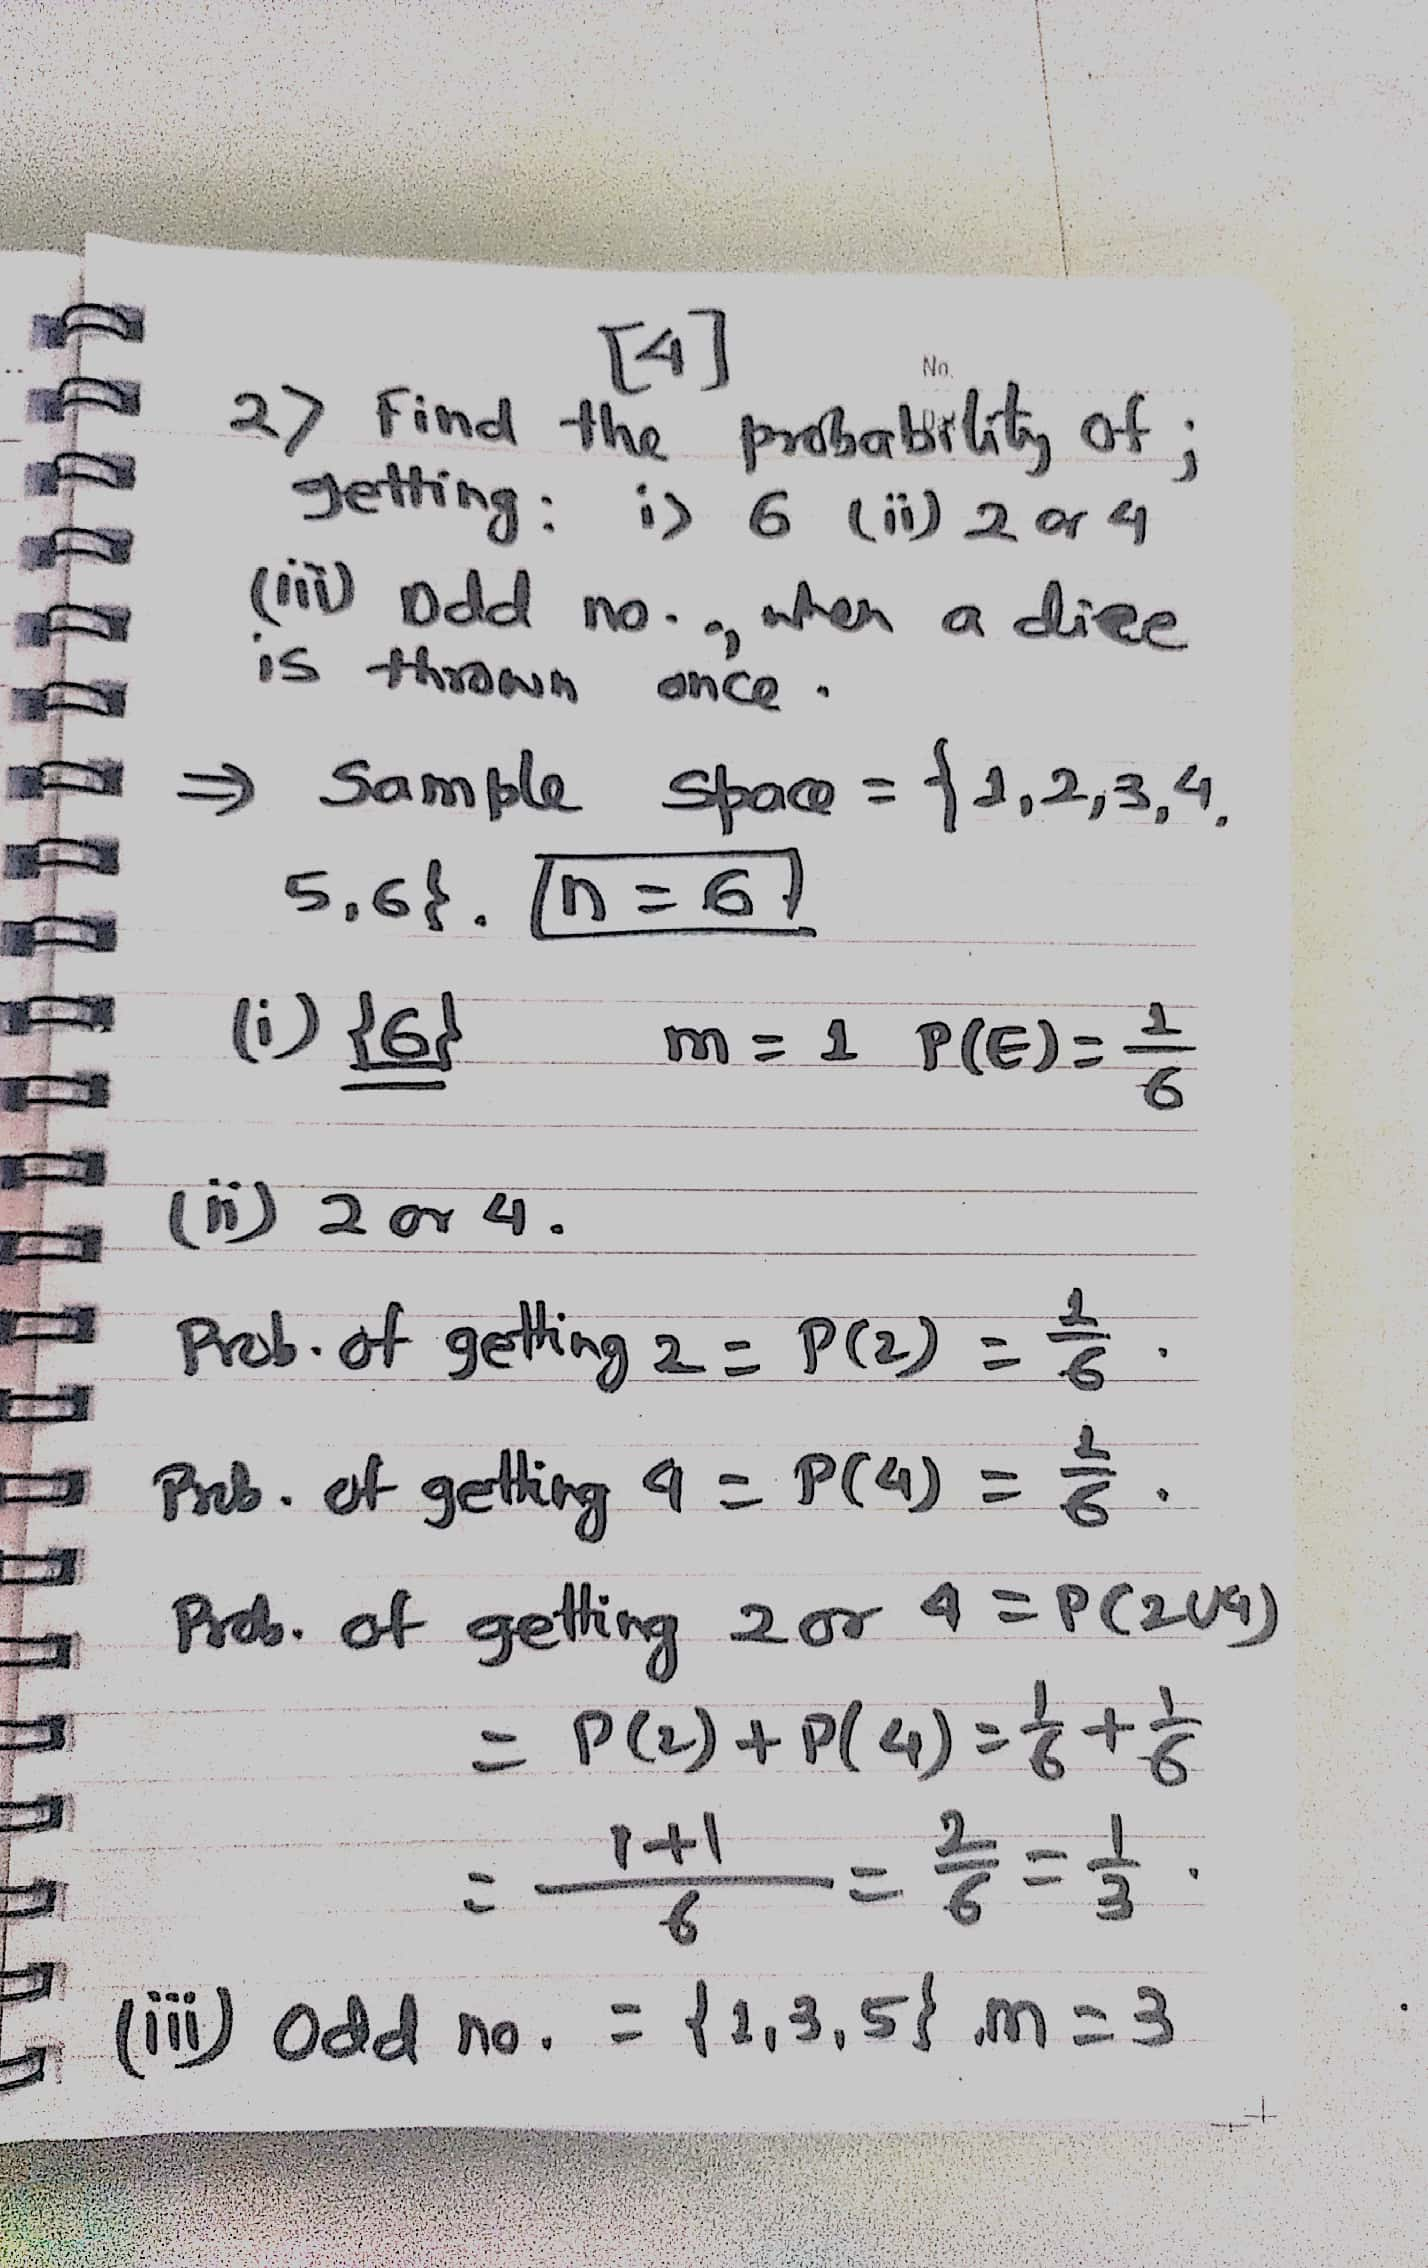 [4]
No.
2> Find the probability of ;
getting : i> 6 (ii) 2 or 4
(iii) Odd no. , when a dice
is thrown once .
⇒ Sample space = {1,2,3,4,
5,6}. [n = 6]
(i) {6} m = 1 P(E) = 1/6
(ii) 2 or 4.
Prob. of getting 2 = P(2) = 1/6 .
Prob. of getting 4 = P(4) = 1/6 .
Prob. of getting 2 or 4 = P(2∪4)
= P(2) + P(4) = 1/6 + 1/6
= 1+1/6 = 2/6 = 1/3 .
(iii) Odd no. = {1,3,5} ,m = 3